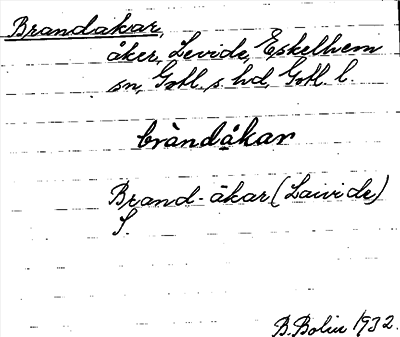 Brandakar,
åker, Levide, Eskelhem
sn, Gotl. s. hd, Gotl. l.
bràndåkar
Brand-åkar (Laivide)
S.
B. Bolin 1932.